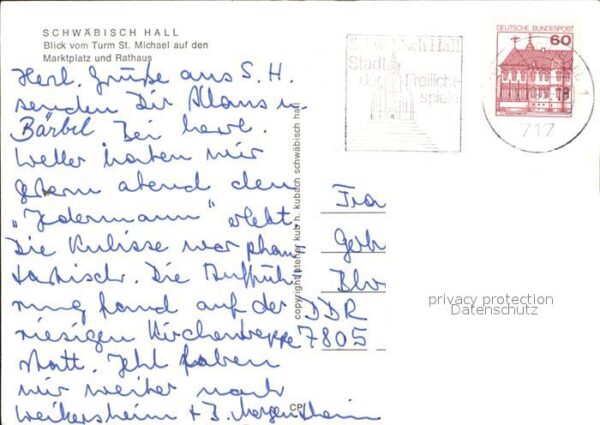 SCHWÄBISCH HALL
Blick vom Turm St. Michael auf den
Marktplatz und Rathaus
Herl. Grüße aus S. H.
senden Dir Klaus u.
Bärbel. Bei herrl.
Wetter haben wir
gestern abend den
"Jedermann" erlebt.
Die Kulisse war phan-
tastisch. Die Aufführ-
ung fand auf der
riesigen Kirchentreppe
statt. Jetzt fahren
wir weiter nach
Weikersheim + B. Mergentheim
copyright atelier kub h. kubach schwäbisch hall
CP
Schwäbisch Hall
Stadt
der Freilicht-
spiele
DEUTSCHE BUNDESPOST
60
18
717
1
Fra
Gerb
DDR
7805
privacy protection
Datenschutz